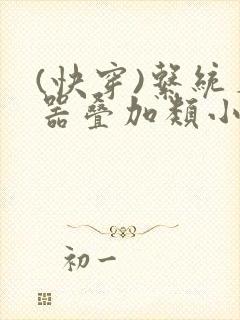 (快穿)繫統
器疊加類小
初一